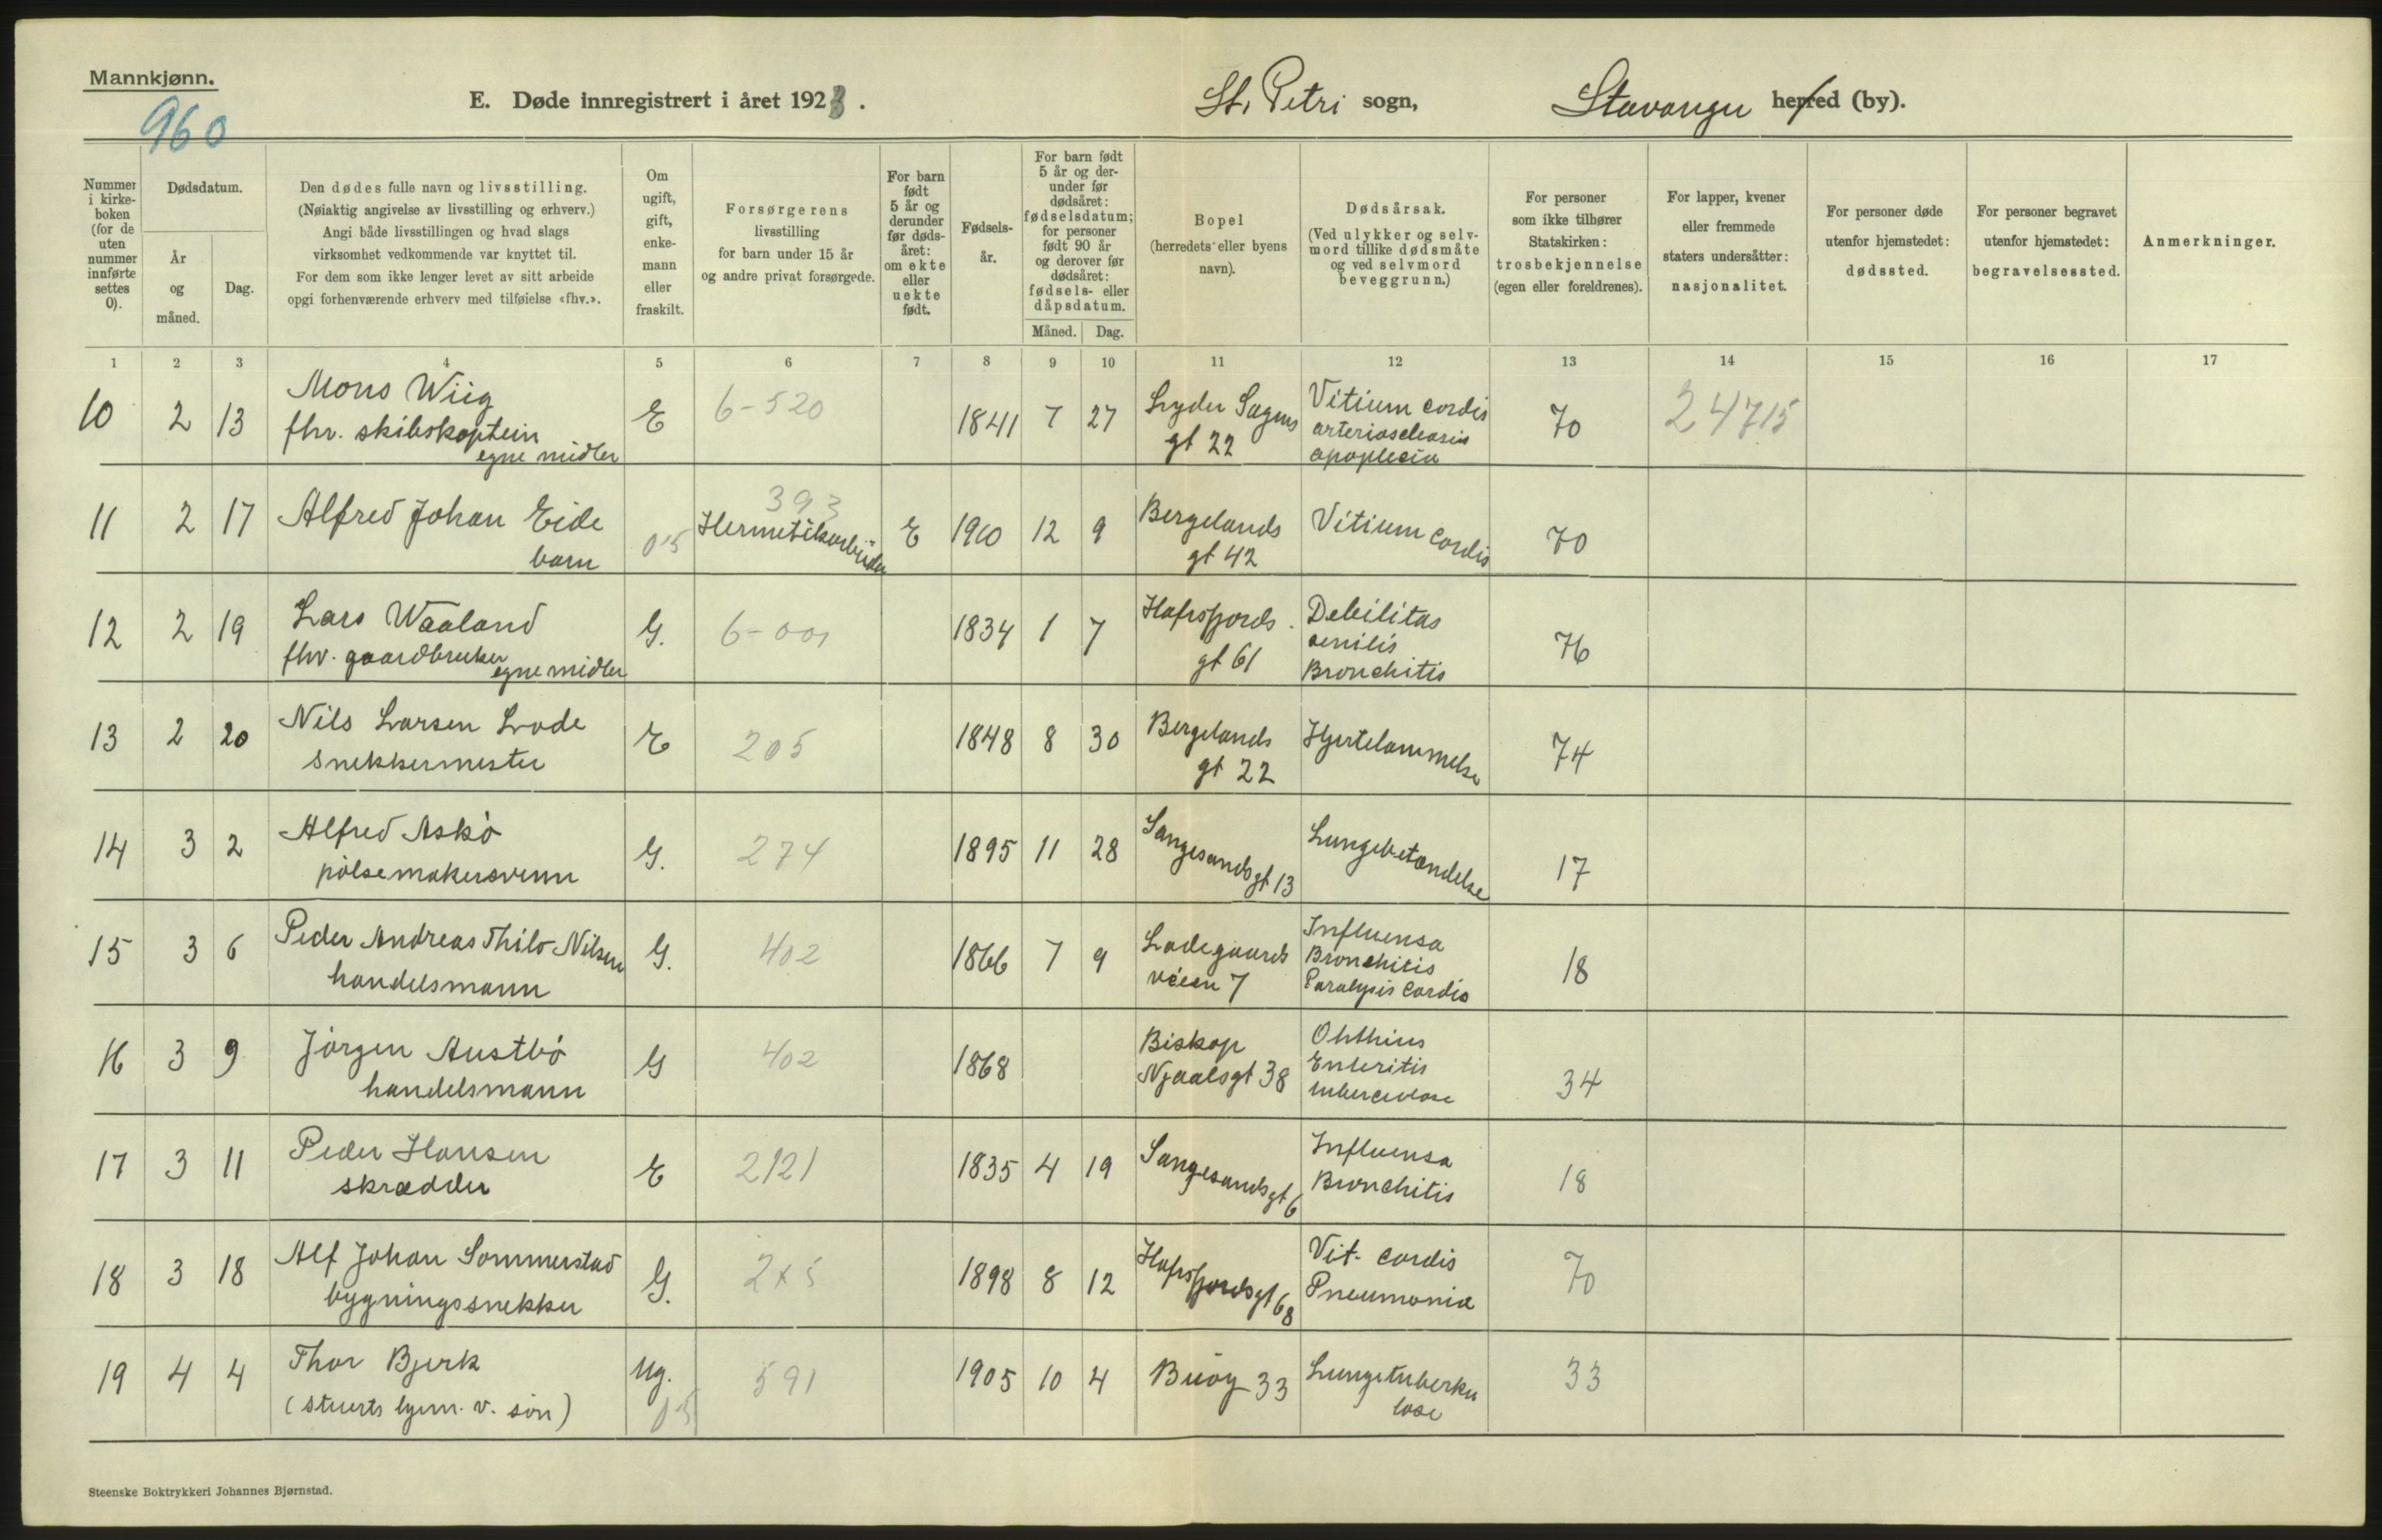 Mannkjønn.
960
E. Døde innregistrert i året 1923.
St. Petri sogn,
Stavanger herred (by).
Nummer i kirke-boken (for de uten nummer innførte settes 0).
Dødsdatum.
År og måned.
Dag.
Den dødes fulle navn og livsstilling.
(Nøiaktig angivelse av livsstilling og erhverv.)
Angi både livsstillingen og hvad slags
virksomhet vedkommende var knyttet til.
For dem som ikke lenger levet av sitt arbeide
opgi forhenværende erhverv med tilføielse «fhv.».
Om ugift, gift, enke-mann eller fraskilt.
Forsørgerens
livsstilling
for barn under 15 år
og andre privat forsørgede.
For barn født 5 år og derunder før døds-året: om ekte eller uekte født.
Fødsels-år.
For barn født 5 år og der-under før dødsåret: fødselsdatum; for personer født 90 år og derover før dødsåret: fødsels- eller dåpsdatum.
Måned.
Dag.
Bopel
(herredets eller byens
navn).
Dødsårsak.
(Ved ulykker og selv-
mord tillike dødsmåte
og ved selvmord
beveggrunn.)
For personer
som ikke tilhører
Statskirken:
trosbekjennelse
(egen eller foreldrenes).
For lapper, kvener
eller fremmede
staters undersåtter:
nasjonalitet.
For personer døde
utenfor hjemstedet:
dødssted.
For personer begravet
utenfor hjemstedet:
begravelsessted.
Anmerkninger.
1 2 3 4 5 6 7 8 9 10 11 12 13 14 15 16 17
10 2 13 Mons Wiig E 6-520 1841 7 27 Lyder Sagens Vitium cordis 70 24715
fhv. skibskaptein gt 22 arteriosclerosis
egne midler apoplexia
393
11 2 17 Alfred Johan Eide Hermetikarbeider E 1910 12 9 Bergelands Vitium cordis 70
barn 015 gt 42
12 2 19 Lars Waaland G. 6-001 1834 1 7 Hafrsfjords. Debilitas 76
fhv. gaardbruker gt 61 senilis
egne midler Bronchitis
13 2 20 Nils Larsen Lode E 205 1848 8 30 Bergelands Hjertelammelse 74
snekkermester gt 22
14 3 2 Alfred Askö G. 274 1895 11 28 Sangesandsgt 13 Lungebetændelse 17
pölsemakersvenn
15 3 6 Peder Andreas Thilo Nilsen G. 402 1866 7 9 Ladegaards Influensa 18
handelsmann veien 7 Bronchitis
Paralysis cordis
16 3 9 Jörgen Austbö G 402 1868 Biskop 34
handelsmann Njaalsgt 38 Enteritis
tuberculose
17 3 11 Peder Hansen E 2121 1835 4 19 Sangesandsgt 6 Influensa 18
skrædder Bronchitis
18 3 18 Alf Johan Sommerstad G. 2x5 1898 8 12 Hafrsfjordsgt 68 Vit. cordis 70
bygningssnekker Pneumonia
19 4 4 Thor Bjerk Ug. 591 1905 10 4 Buöy 33 Lungetuberku 33
(stuerts hjem. v. sön) 05 lose
Steenske Boktrykkeri Johannes Bjørnstad.